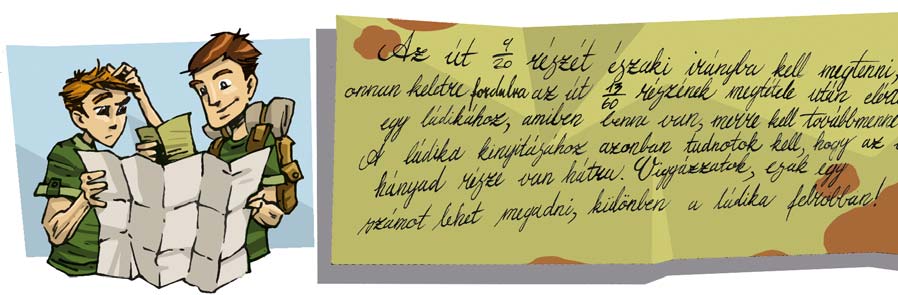 Az út 9/20 részét északi irányba kell megtenni,
onnan keletre fordulva az út 13/60 részének megtétele után
egy ládikához, amiben benne van, merre kell továbbmenne
A ládika kinyitásához azonban tudnotok kell, hogy az
hányad része van hátra. Vigyázzatok, csak egy
számot lehet megadni, különben a ládika felrobban!